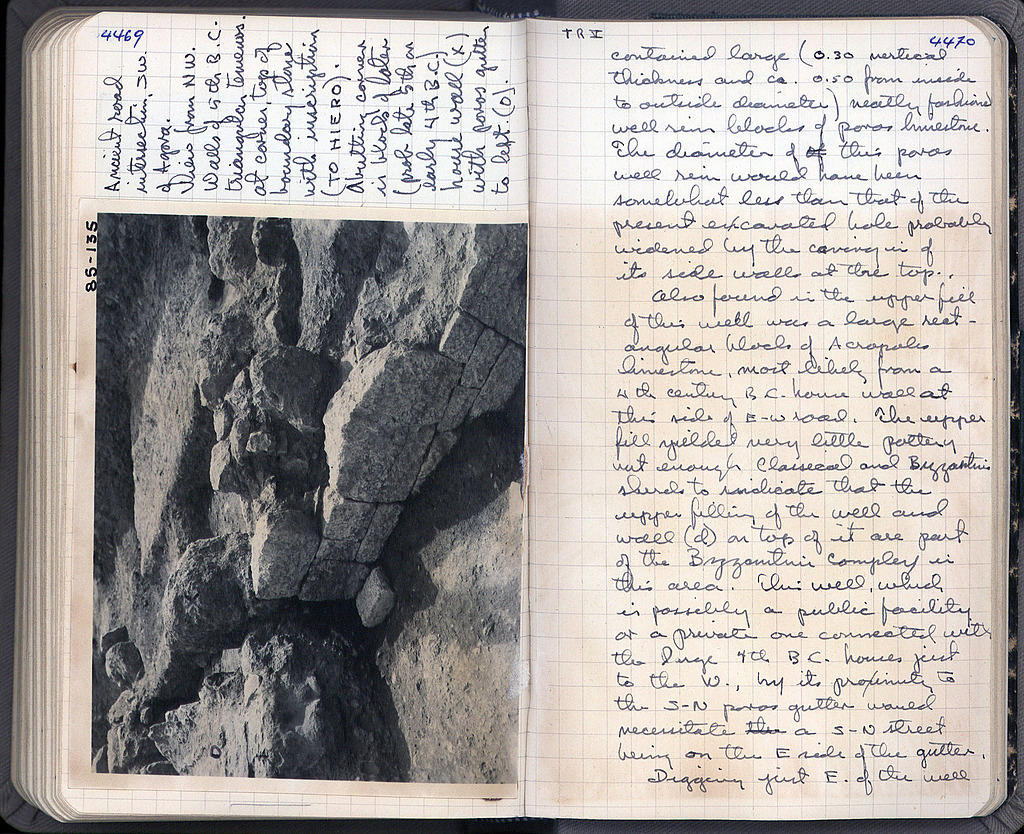 4469
Ancient road
intersection, SW.
of Agora.
View from NW.
Walls of 5th B.C.
triangular temenos.
at corner, top of
boundary stone
with inscription
(TO HIERO).
Abutting corner
is block of later
(prob. late 5th or
early 4th B.C.)
house wall (X)
with poros gutter
to left (O).
85-135
X
O
TR I
4470
contained large (0.30 vertical
thickness and ca. 0.50 from inside
to outside diameter) neatly fashioned
well rim blocks of poros limestone.
The diameter of this poros
well rim would have been
somewhat less than that of the
present excavated hole probably
widened by the caving in of
its side walls at the top.
Also found in the upper fill
of this well was a large rect-
angular block of Acropolis
limestone, most likely from a
4th century B.C. house wall at
this side of E-W road. The upper
fill yielded very little pottery
but enough Classical and Byzantine
sherds to indicate that the
upper filling of the well and
wall (d) on top of it are part
of the Byzantine complex in
this area. This well, which
is possibly a public facility
or a private one connected with
the large 4th B.C. houses just
to the W., by its proximity to
the S-N poros gutter would
necessitate a S-N street
being on the E side of the gutter.
Digging just E. of the well